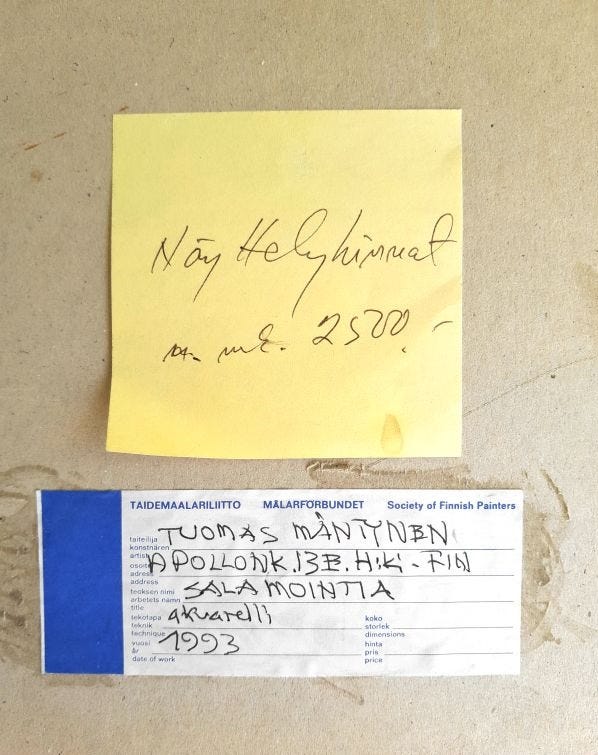 Näyttelyhinnat
mk. 2500.-
TAIDEMAALARILIITTO MÅLARFÖRBUNDET Society of Finnish Painters
taiteilija
konstnären
artist
TUOMAS MÄNTYNEN
osoite
adress
address
APOLLONK.13B.H:KI-FIN
teoksen nimi
arbetets namn
title
SALAMOINTIA
tekotapa
teknik
technique
akvarelli
koko
storlek
dimensions
vuosi
år
date of work
1993
hinta
pris
price